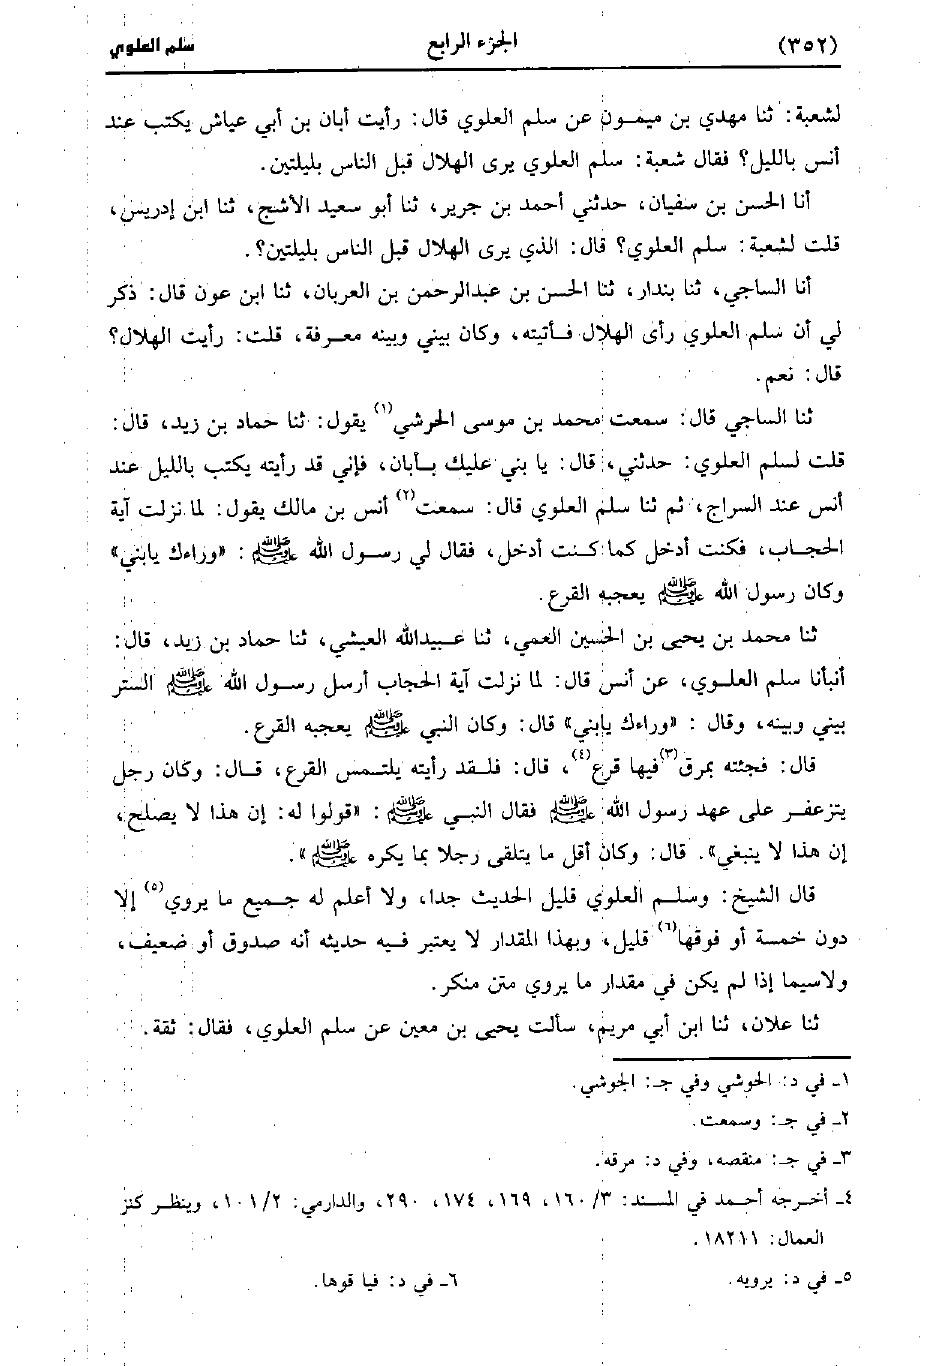 (٣٥٢) الجزء الرابع سلم العلوي
لشعبة: ثنا مهدي بن ميمون عن سلم العلوي قال: رأيت أبان بن أبي عياش يكتب عند
أنس بالليل؟ فقال شعبة: سلم العلوي يرى الهلال قبل الناس بليلتين.
أنا الحسن بن سفيان، حدثني أحمد بن جرير، ثنا أبو سعيد الأشج، ثنا ابن إدريس،
قلت لشعبة: سلم العلوي؟ قال: الذي يرى الهلال قبل الناس بليلتين؟.
أنا الساجي، ثنا بندار، ثنا الحسن بن عبدالرحمن بن العربان، ثنا ابن عون قال: ذكر
لي أن سلم العلوي رأى الهلال فأتيته، وكان بيني وبينه معرفة، قلت: رأيت الهلال؟
قال: نعم.
ثنا الساجي قال: سمعت محمد بن موسى الحرشي(١) يقول: ثنا حماد بن زيد، قال:
قلت لسلم العلوي: حدثني، قال: يا بني عليك بأبان، فإني قد رأيته يكتب بالليل عند
أنس عند السراج، ثم ثنا سلم العلوي قال: سمعت(٢) أنس بن مالك يقول: لما نزلت آية
الحجاب، فكنت أدخل كما كنت أدخل، فقال لي رسول الله ﷺ: «وراءك يابني»
وكان رسول الله ﷺ يعجبه القرع.
ثنا محمد بن يحيى بن الحسين العمي، ثنا عبيدالله العيشي، ثنا حماد بن زيد، قال:
أنبأنا سلم العلوي، عن أنس قال: لما نزلت آية الحجاب أرسل رسول الله ﷺ الستر
بيني وبينه، وقال : «وراءك يابني» قال: وكان النبي ﷺ يعجبه القرع.
قال: فجئته بمرق(٣) فيها قرع(٤)، قال: فلقد رأيته يلتمس القرع، قال: وكان رجل
يتزعفر على عهد رسول الله ﷺ فقال النبي ﷺ: «قولوا له: إن هذا لا يصلح،
إن هذا لا ينبغي». قال: وكان أقل ما يتلقى رجلا بما يكره ﷺ».
قال الشيخ: وسلم العلوي قليل الحديث جدا، ولا أعلم له جميع ما يروي(٥) إلا
دون خمسة أو فوقها(٦) قليل، وبهذا المقدار لا يعتبر فيه حديثه أنه صدوق أو ضعيف،
ولاسيما إذا لم يكن في مقدار ما يروي متن منكر.
ثنا علان، ثنا ابن أبي مريم، سألت يحيى بن معين عن سلم العلوي، فقال: ثقة.
١ـ في د: الحوشي وفي جـ: الجوشي.
٢ـ في جـ: وسمعت.
٣ـ في جـ: منقصه، وفي د: مرقه.
٤ـ أخرجه أحمد في المسند: ١٦٠/٣، ١٦٩، ١٧٤، ٢٩٠، والدارمي: ١٠١/٢، وينظر كنز
العمال: ١٨٢١١.
٥ـ في د: يرويه. ٦ـ في د: فيا قوها.